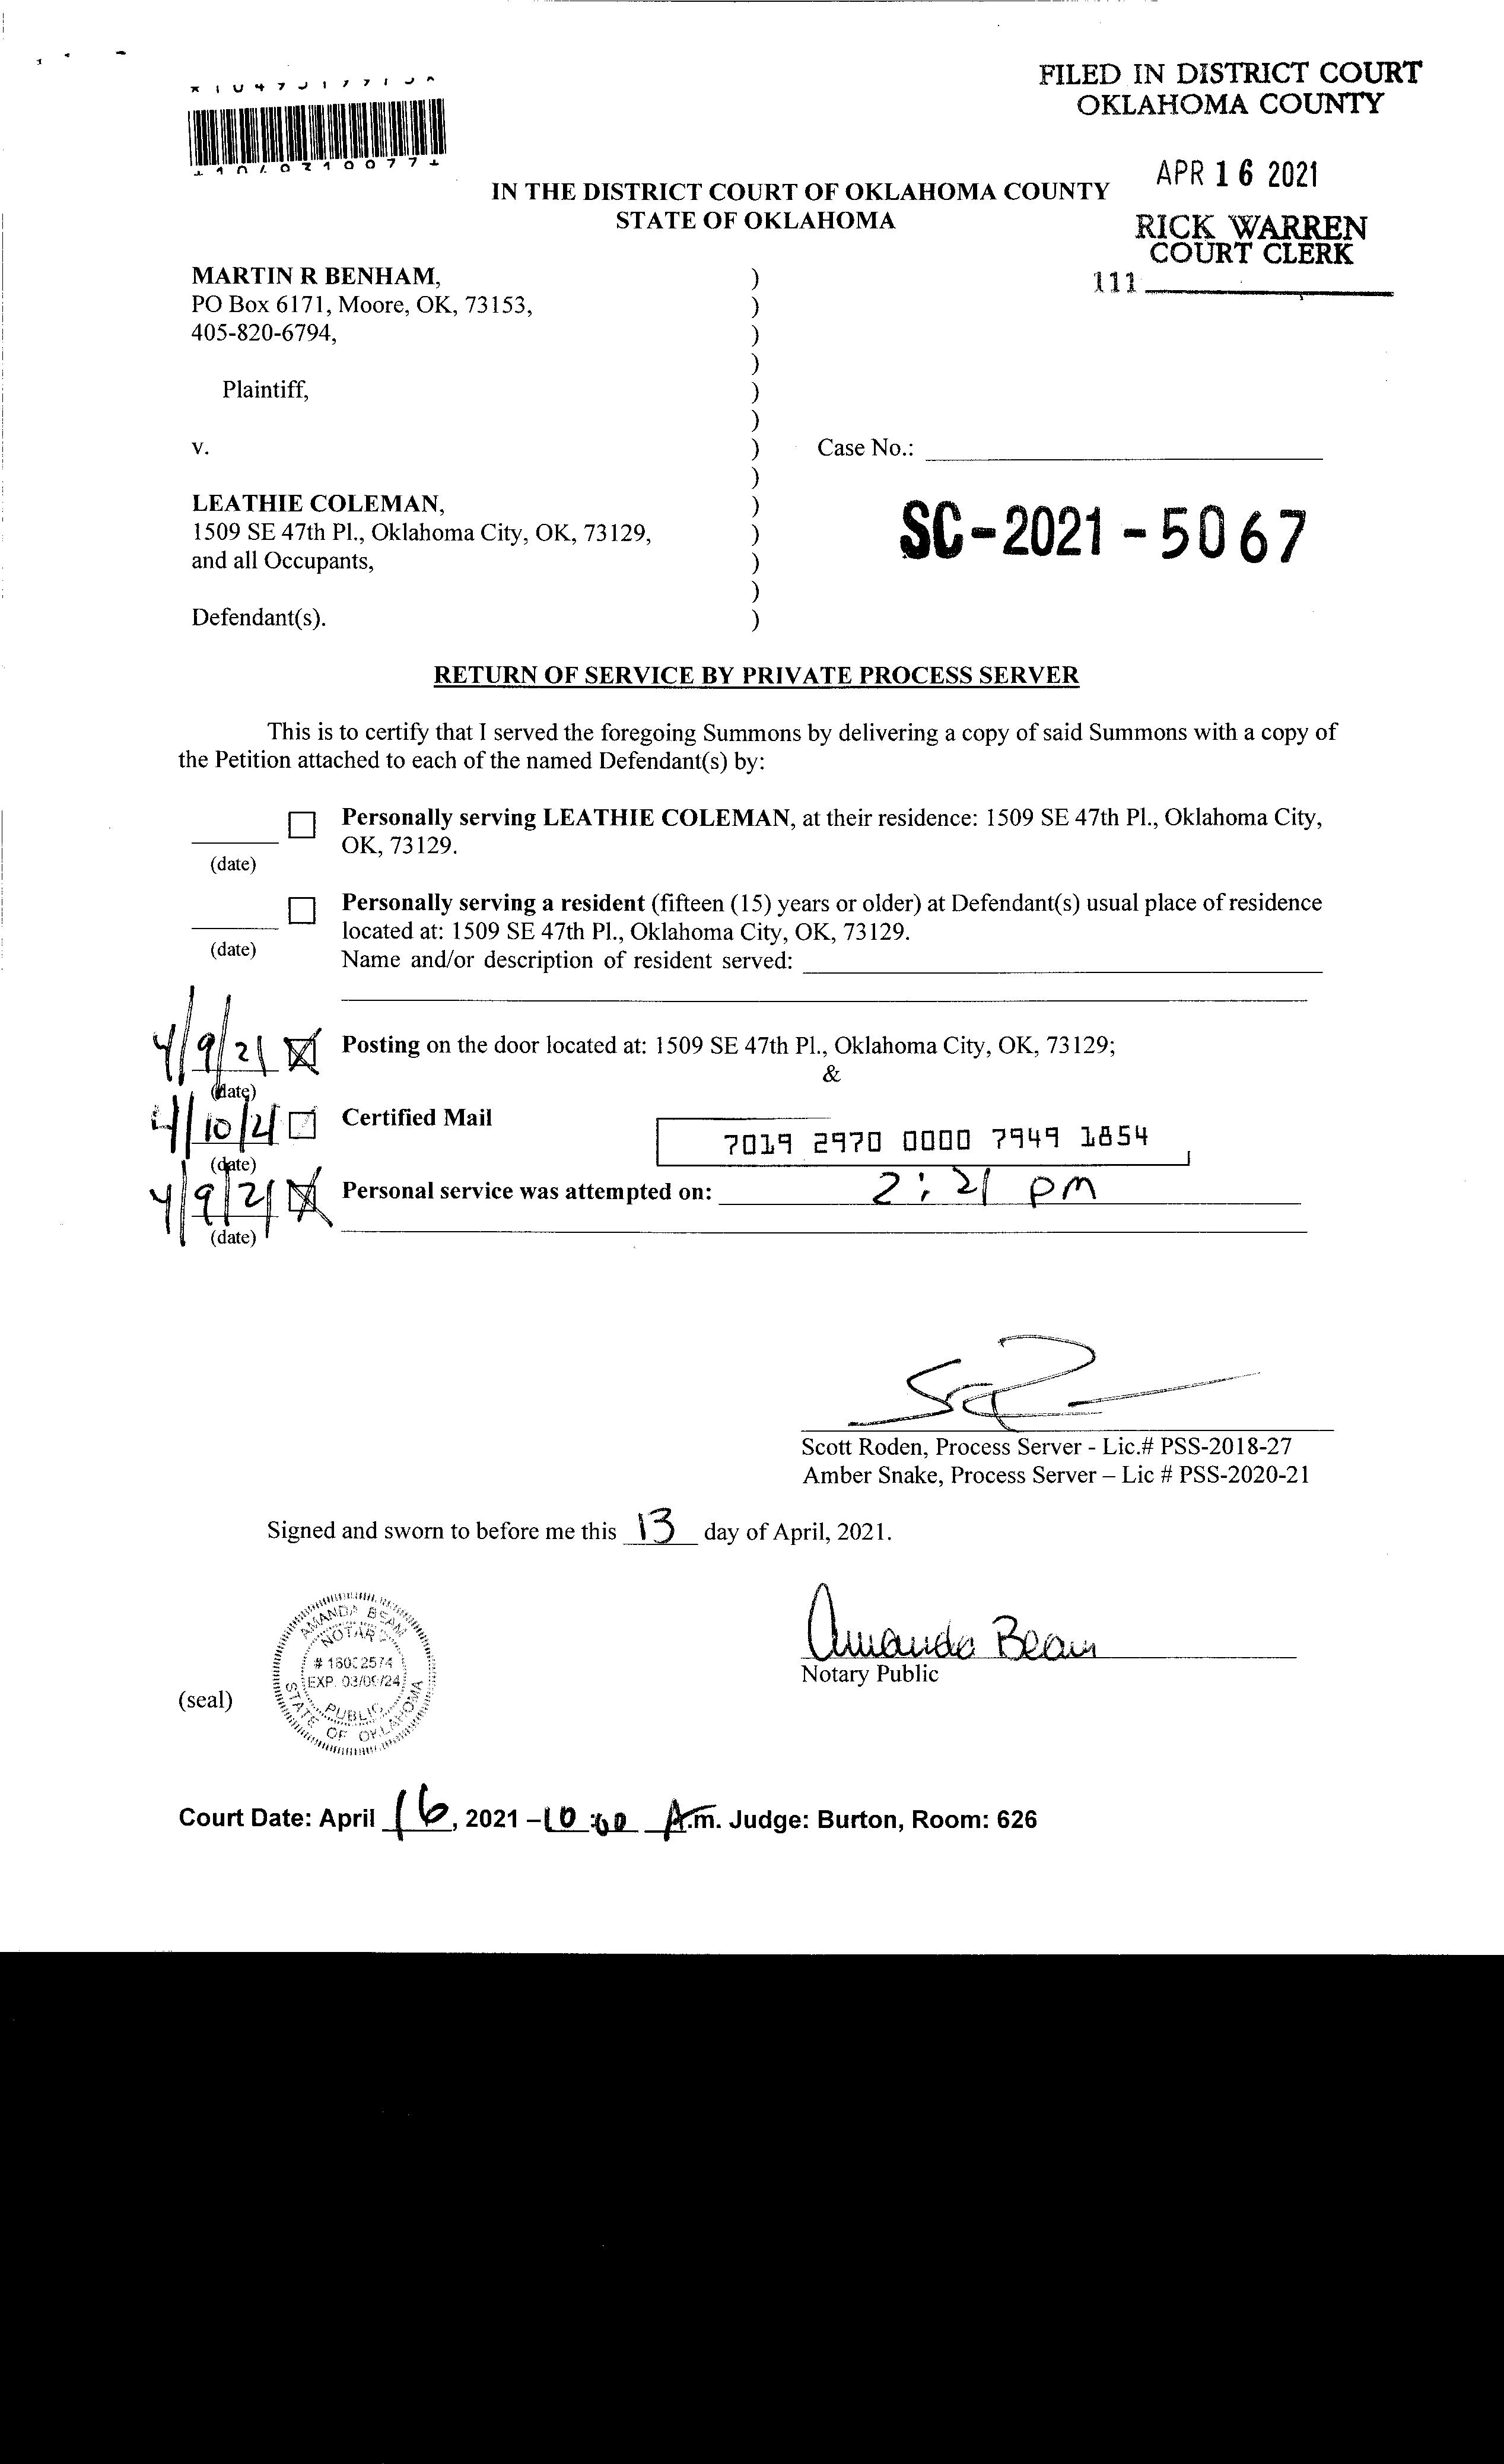 FILED IN DISTRICT COURT
OKLAHOMA COUNTY
APR 16 2021
RICK WARREN
COURT CLERK
111
IN THE DISTRICT COURT OF OKLAHOMA COUNTY
STATE OF OKLAHOMA
MARTIN R BENHAM, )
PO Box 6171, Moore, OK, 73153, )
405-820-6794, )
)
Plaintiff, )
)
v. ) Case No.:
)
LEATHIE COLEMAN, )
1509 SE 47th Pl., Oklahoma City, OK, 73129, ) SC-2021-5067
and all Occupants, )
)
Defendant(s). )
RETURN OF SERVICE BY PRIVATE PROCESS SERVER
This is to certify that I served the foregoing Summons by delivering a copy of said Summons with a copy of
the Petition attached to each of the named Defendant(s) by:
Personally serving LEATHIE COLEMAN, at their residence: 1509 SE 47th Pl., Oklahoma City,
OK, 73129.
(date)
Personally serving a resident (fifteen (15) years or older) at Defendant(s) usual place of residence
located at: 1509 SE 47th Pl., Oklahoma City, OK, 73129.
(date)
Name and/or description of resident served:
4/9/21 Posting on the door located at: 1509 SE 47th Pl., Oklahoma City, OK, 73129;
&
(date)
4/10/21 Certified Mail
7019 2970 0000 7949 1854
(date)
4/9/21 Personal service was attempted on: 2:21 pm
(date)
Scott Roden, Process Server - Lic.# PSS-2018-27
Amber Snake, Process Server – Lic # PSS-2020-21
Signed and sworn to before me this 13 day of April, 2021.
AMANDA BEAM
NOTARY
EXP. 03/09/24
PUBLIC
STATE OF OKLAHOMA
(seal)
Amanda Beam
Notary Public
Court Date: April 16, 2021 – 10:00 A.m. Judge: Burton, Room: 626